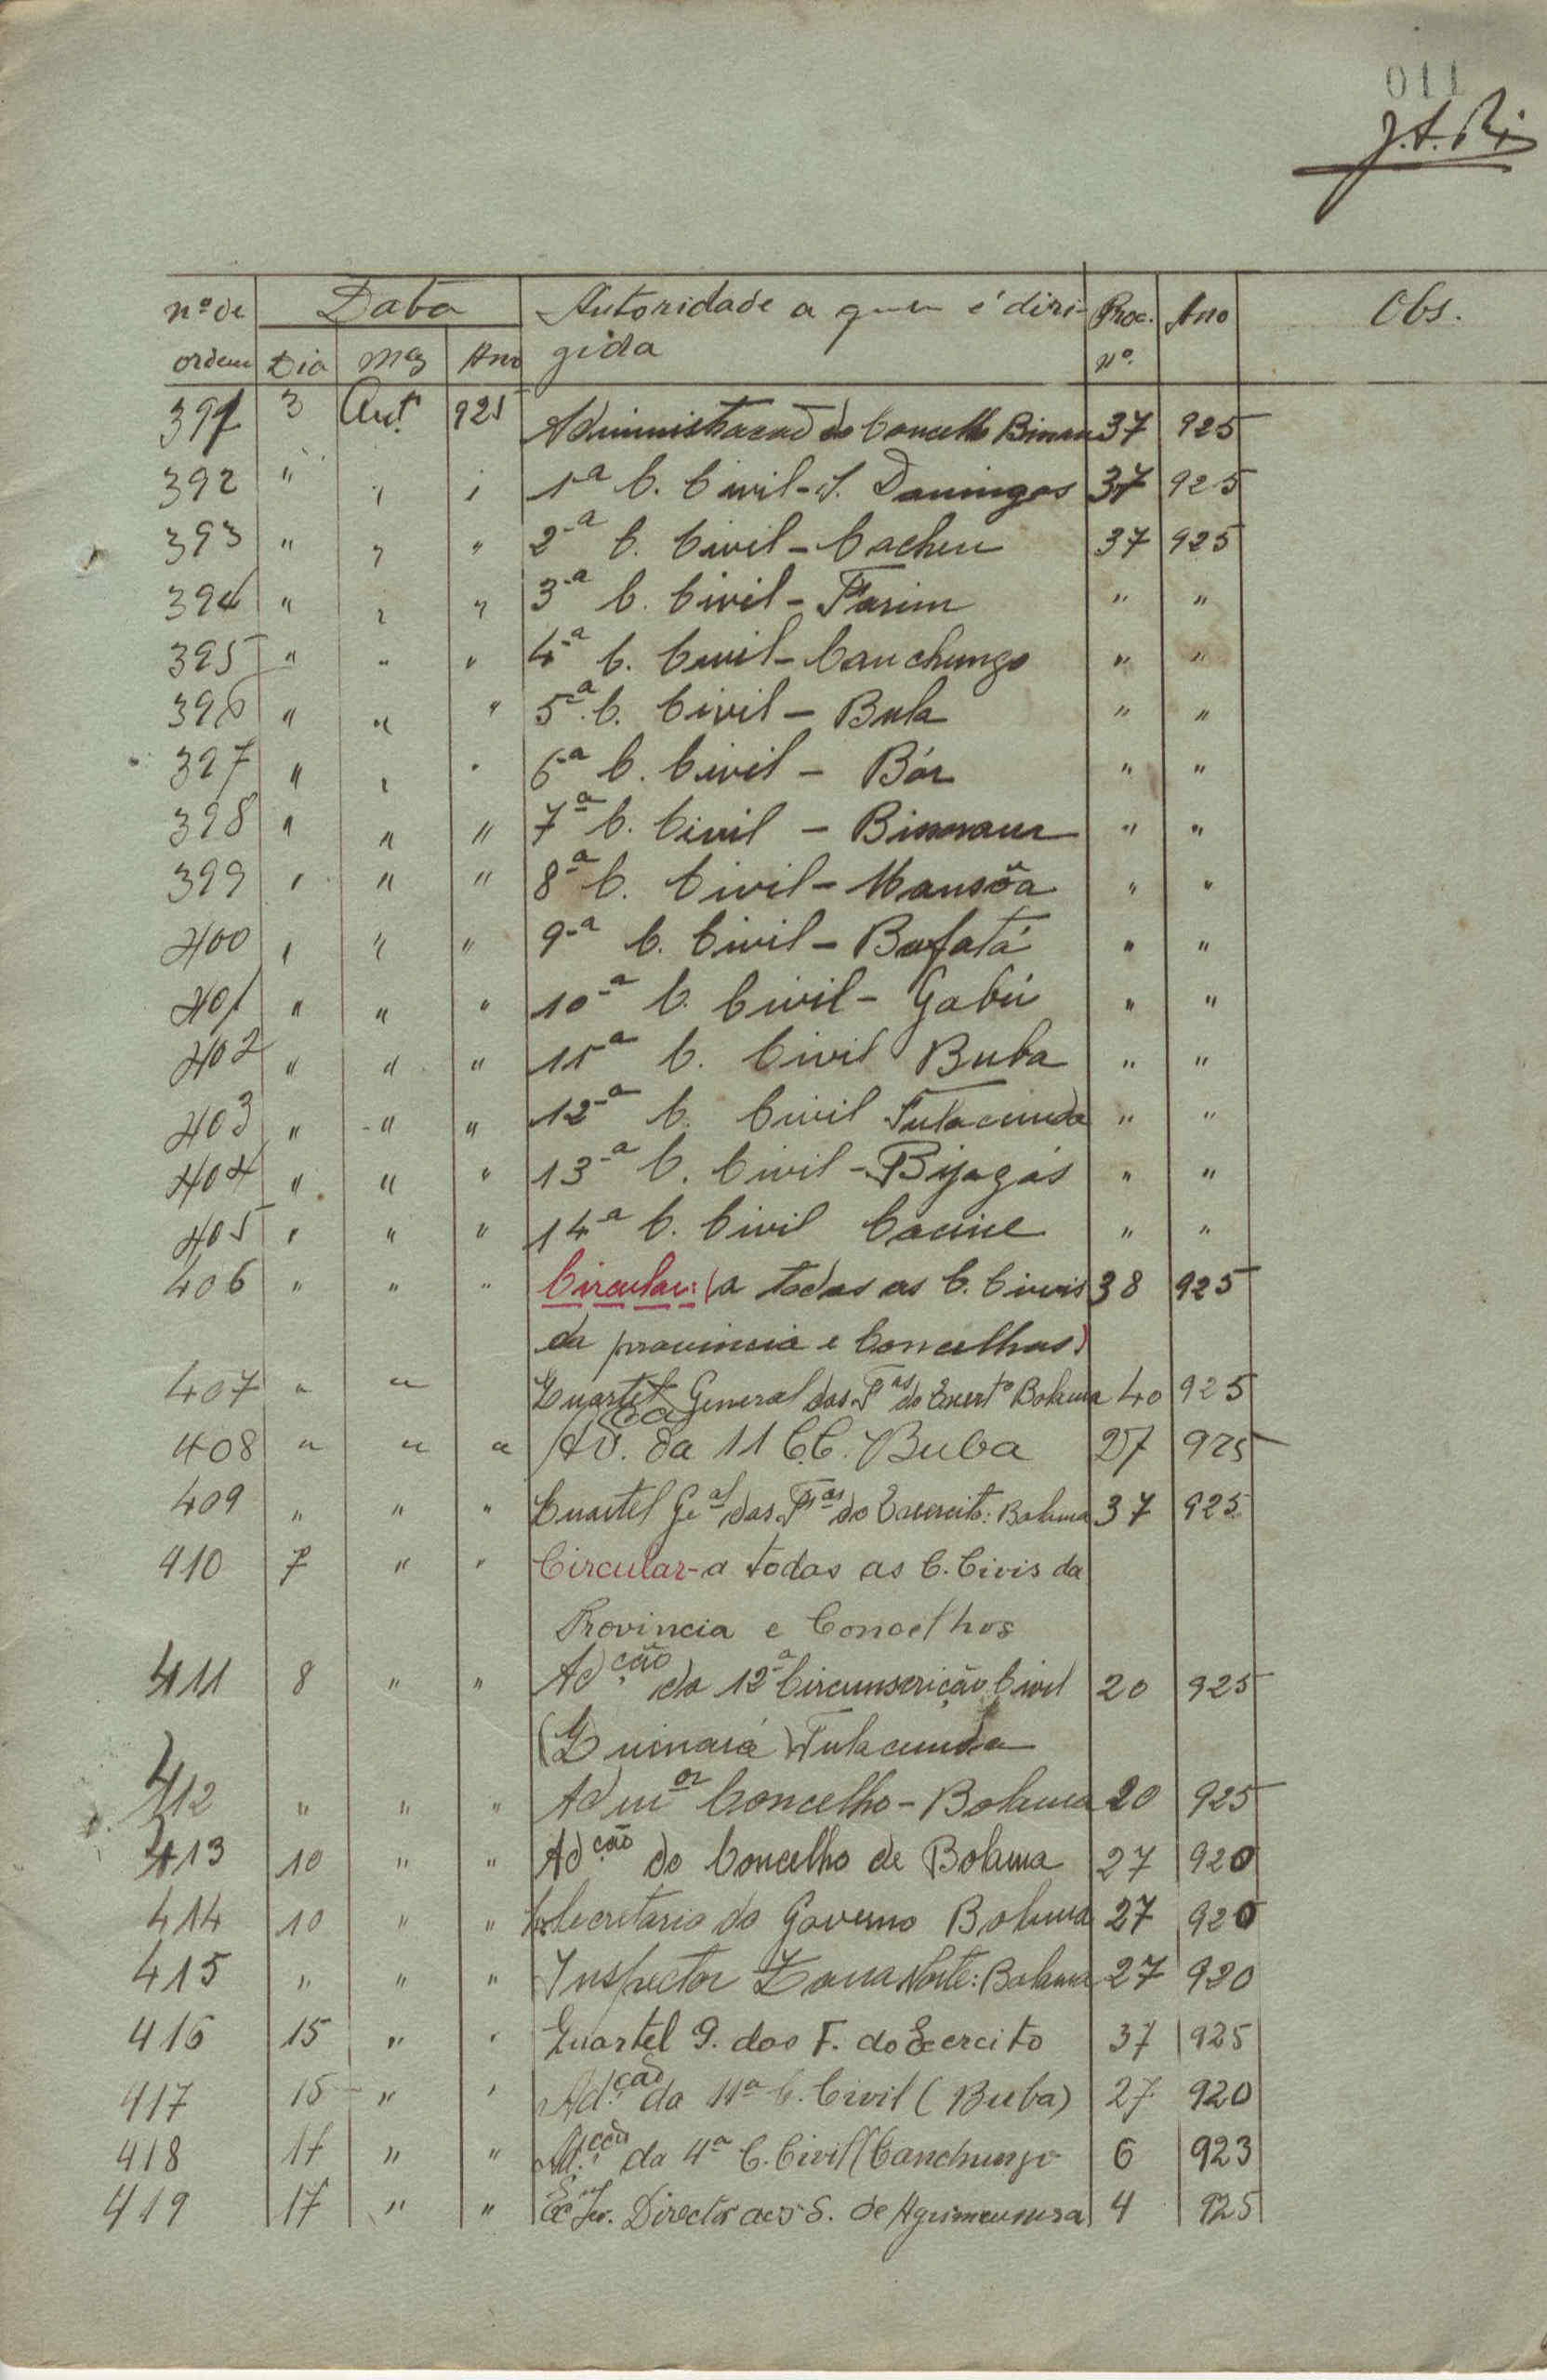 011
J.A.Ri
nº de Data Autoridade a quem é diri- Proc. Ano Obs.
ordem Dia Mez Ano gida nº.
391 3 Out. 925 Administracao do Concelho Bissau 37 925
392 " " " 1ª C. Civil - S. Domingos 37 925
393 " " " 2ª C. Civil - Cacheu 37 925
394 " " " 3ª C. Civil - Farim " "
395 " " " 4ª C. Civil - Canchungo " "
396 " " " 5ª C. Civil - Bula " "
397 " " " 6ª C. Civil - Bór " "
398 " " " 7ª C. Civil - Bissau " "
399 " " " 8ª C. Civil - Mansôa " "
400 " " " 9ª C. Civil - Bafatá " "
401 " " " 10ª C. Civil - Gabú " "
402 " " " 11ª C. Civil Buba " "
403 " " " 12ª C. Civil Fulacunda " "
404 " " " 13ª C. Civil - Bijagós " "
405 " " " 14ª C. Civil Cacine " "
406 " " " Circular: (a todas as C. Civis 38 925
da provincia e Concelhos)
407 " " Quartel General das Fas do Exert° Bolama 40 925
408 " " " Ad.ção da 11 C.C. Buba 27 925
409 " " " Cuartel Geal das Fas do Exercito: Bolama 37 925
410 7 " " Circular - a todas as C. Civis da
Provincia e Concelhos
411 8 " " Adção da 12ª Circunscrição Civil 20 925
(Quinará) Fulacunda
412 " " " Admor Concelho - Bolama 20 925
413 10 " " Adção do Concelho de Bolama 27 920
414 10 " " Secretario do Governo Bolama 27 920
415 " " " Inspector Zona Norte: Bolama 27 920
416 15 " " Quartel G. das F. do Exercito 37 925
417 15 " " Ad.ção da 11ª C. Civil (Buba) 27 920
418 17 " " Ad.ção da 4ª C. Civil (Canchungo 6 923
419 17 " " Director dos S. de Agrimensura 4 925